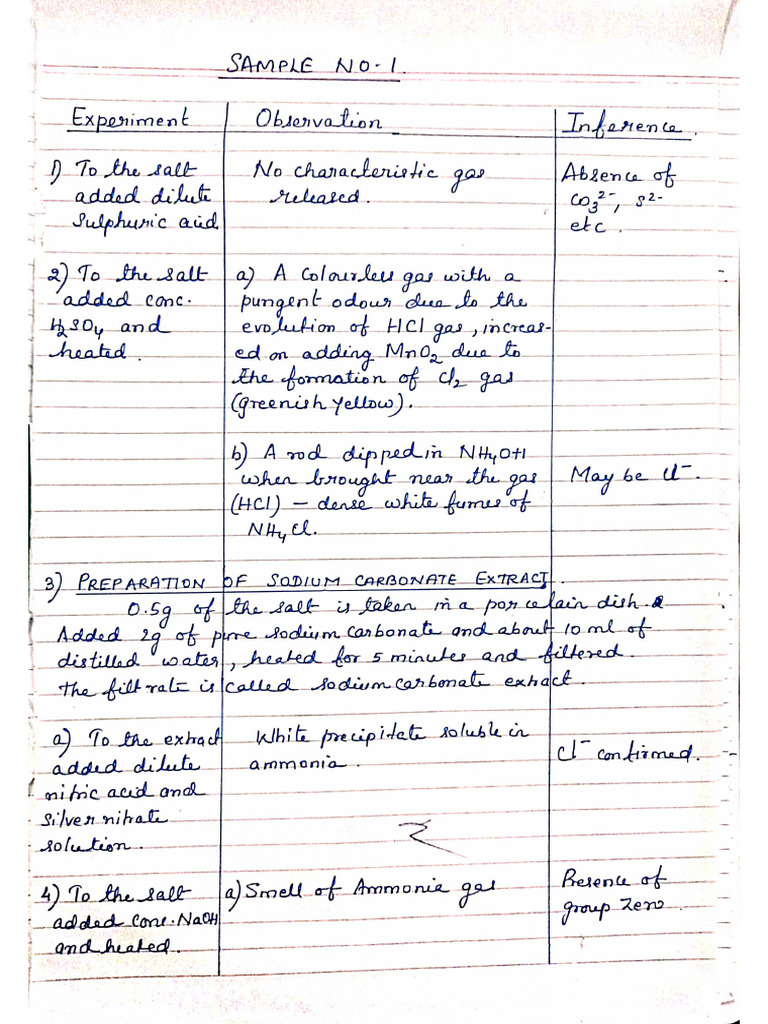 SAMPLE NO-1.
Experiment | Observation | Inference.
1) To the salt | No characteristic gas | Absence of
added dilute | released. | CO₃²⁻, S²⁻
sulphuric acid | | etc.
2) To the salt | a) A colourless gas with a
added conc. | pungent odour due to the
H₂SO₄ and | evolution of HCl gas, increas-
heated. | ed on adding MnO₂ due to
the formation of Cl₂ gas
(greenish yellow).
b) A rod dipped in NH₄OH
when brought near the gas | May be Cl⁻.
(HCl) – dense white fumes of
NH₄Cl.
3) PREPARATION OF SODIUM CARBONATE EXTRACT.
0.5g of the salt is taken in a porcelain dish.
Added 2g of pure sodium carbonate and about 10 ml of
distilled water, heated for 5 minutes and filtered.
The filtrate is called sodium carbonate extract.
a) To the extract | White precipitate soluble in | Cl⁻ confirmed.
added dilute | ammonia.
nitric acid and
silver nitrate
solution.
4) To the salt | a) Smell of Ammonia gas | Presence of
added conc. NaOH | | group zero.
and heated.